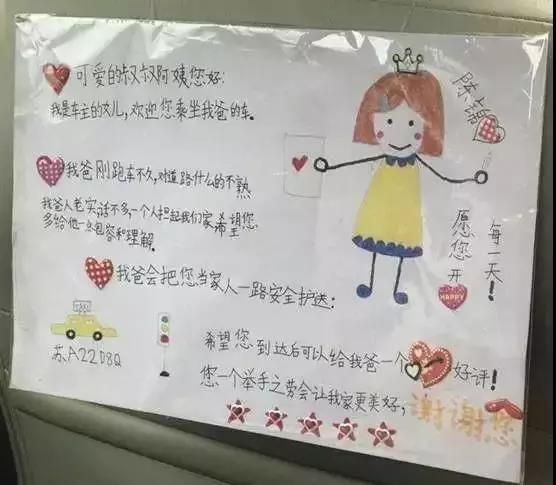 可爱的叔叔阿姨您好:
我是车主的女儿,欢迎您乘坐我爸的车.
我爸刚跑车不久,对道路什么的不熟
我爸人老实话不多,一个人担起我们家希望您
多给他一点包容和理解.
我爸会把您当家人一路安全护送:
希望您到达后可以给我爸一个好评!
您一个举手之劳会让我家更美好,谢谢您
TAXI
苏A22D8Q
陈锦
愿您开
HAPPY
每一天!